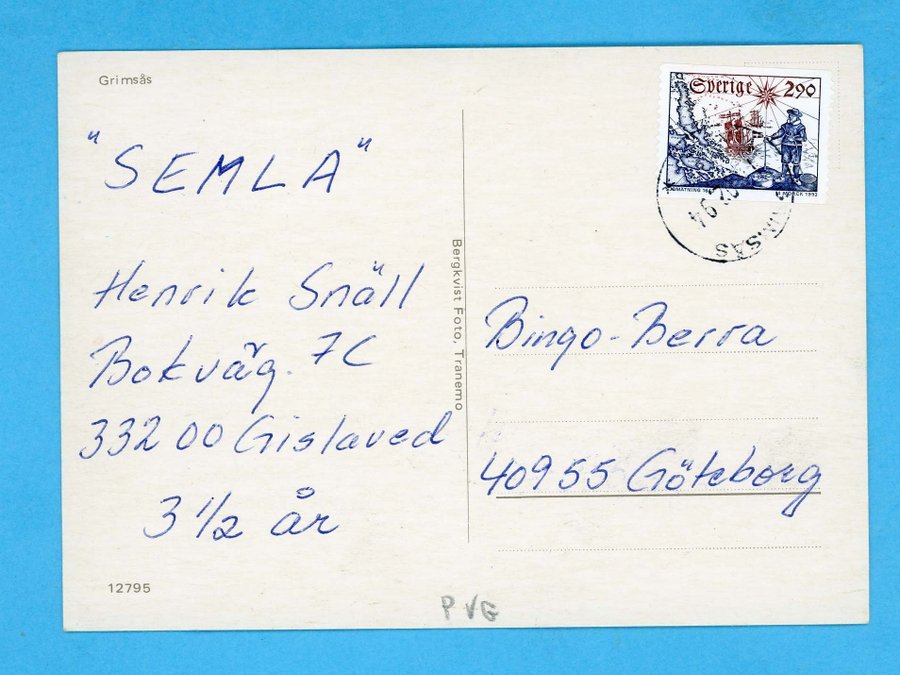 Grimsås
"SEMLA"
Henrik Snäll
Bokväg. 7C
332 00 Gislaved
3 1/2 år
12795
Bergkvist Foto, Tranemo
Sverige 290
Bingo-Berra
40955 Göteborg
PVG